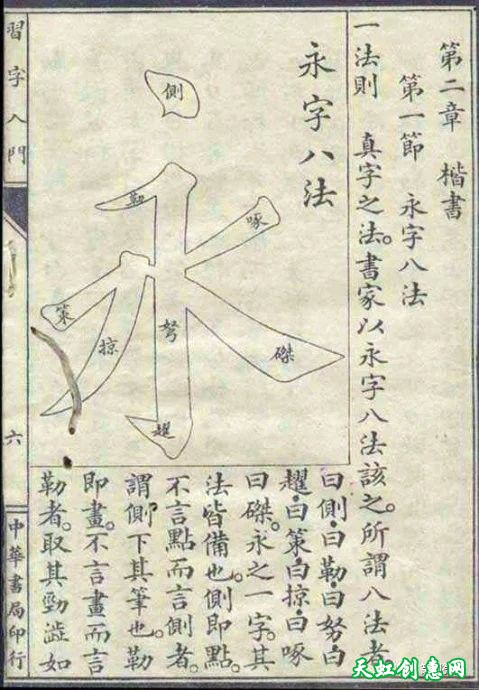 第二章 楷書
第一節 永字八法
一法則 真字之法。書家以永字八法該之。所謂八法者
永字八法
側
勒
啄
策
掠
努
磔
趯
曰側。曰勒。曰努。曰
趯。曰策。曰掠。曰啄
曰磔。永之一字。其
法皆備也。側即點。
不言點而言側者。
謂側下其筆也。勒
即畫。不言畫而言
勒者。取其勁澀如
習字入門
六
中華書局印行
天虹创意网